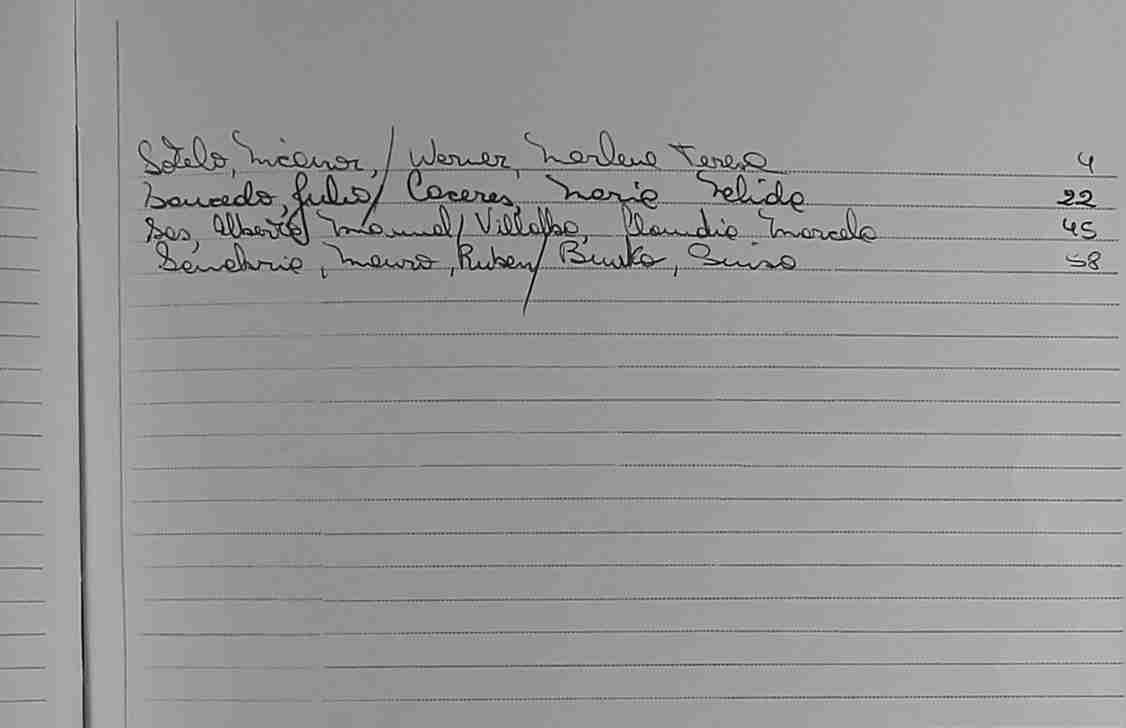 Sotelo, Nicanor, / Werner, Marlene Teresa 4
Saucedo, Julio / Caceres, Maria Nelida 22
Ses, Alberto Manuel / Villalba, Claudia Marcela 45
Sanabria, Mauro, Ruben / 58